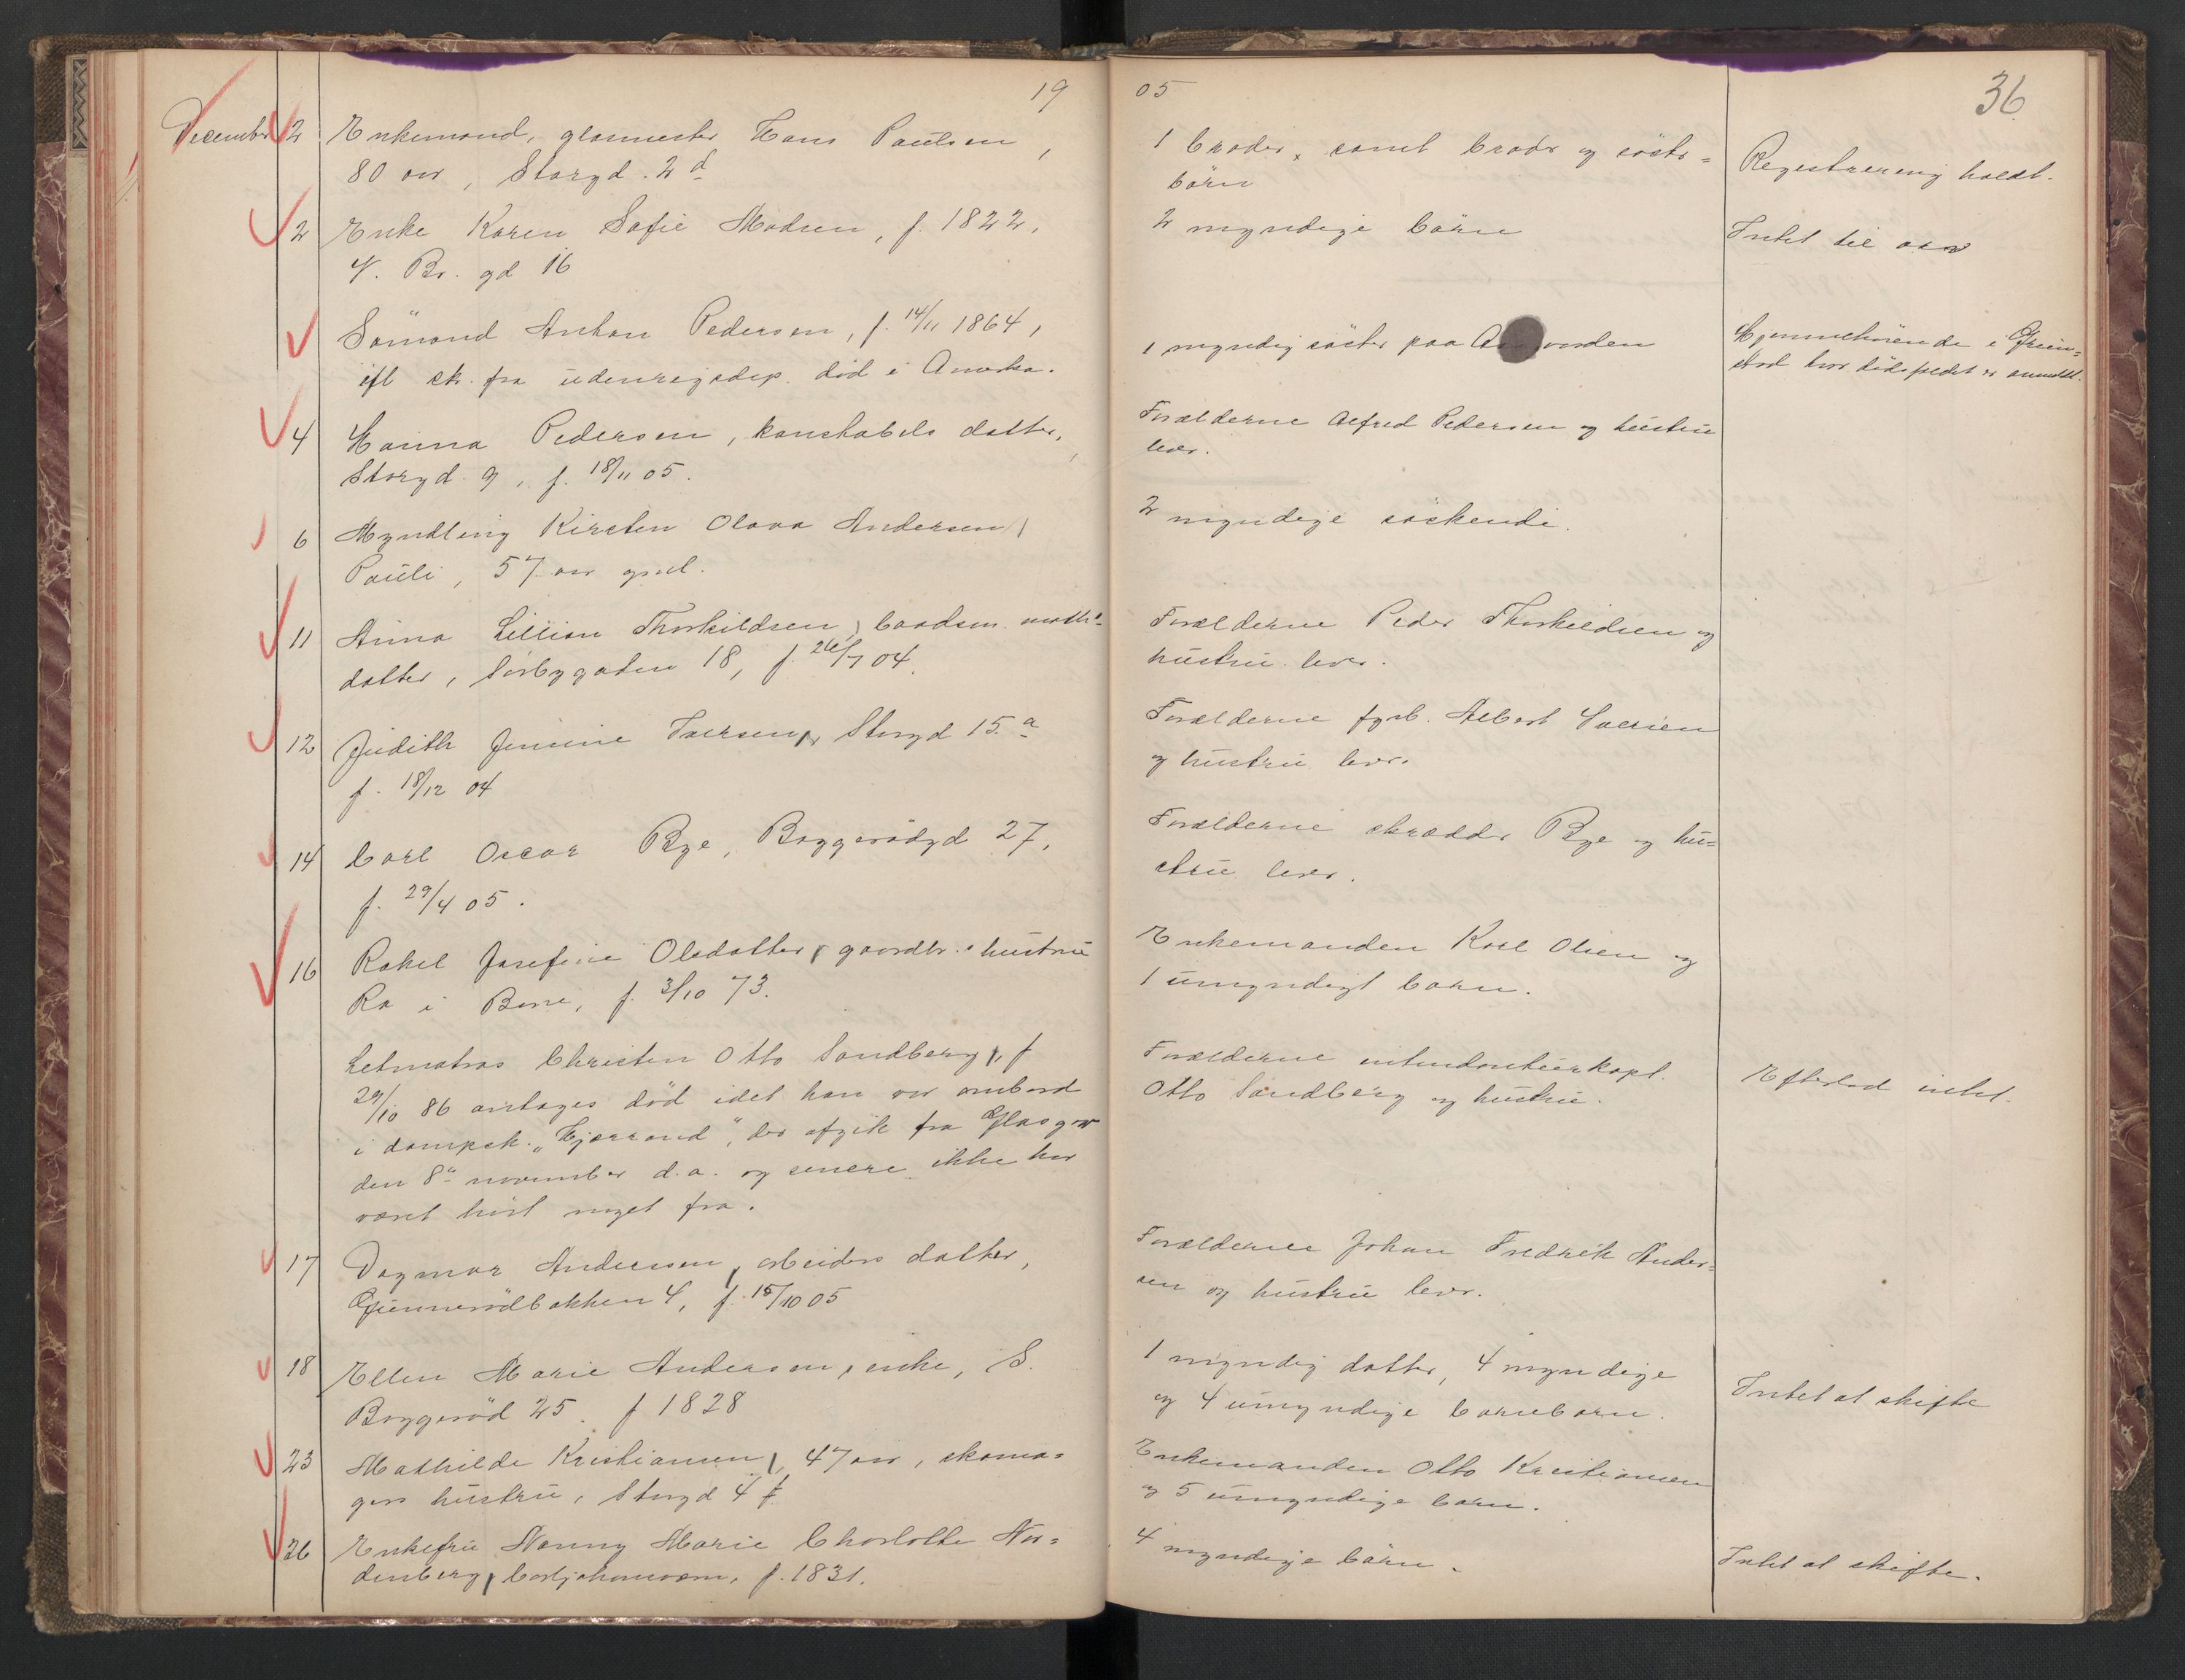 19
05
36
December 2 Enkemand, glasmester Hans Paulsen,
80 aar, Storgd. 2 d
1 broder, samt broder og søster=
børn
Registrering holdt.
2 Enke Karen Sofie Madsen, f. 1822,
V. Br. gd 16
2 myndige børn
Intet til arv
Sömand Anton Pedersen, f. 14/11 1864,
ifl sk. fra udenrigsdep. död i Amerika.
1 myndig söster paa
Hjemmehörende i Grim=
stad hvor dödsfaldet er anmeldt.
4 Hanna Pedersen, konstabels datter,
Storgd. 9, f. 18/11 05.
Forælderne Alfred Pedersen og hustru
lever.
6 Myndling Kirsten Olava Andersen,
Pauli, 57 aar gml.
2 myndige söskende.
11 Anna Lillian Thorkildsen, baadsm. math.
datter, Sörbygaden 18, f. 26/7 04.
Forælderne Peder Thorkildsen og
hustru lever.
12 Judith Jensine Iversen, Storgd 15 a
f. 18/12 04
Forælderne fyrb. Albert Iversen
og hustru lever.
14 Carl Oscar Bye, Baggerödgd 27,
f. 29/4 05.
Forælderne skrædder Bye og hu=
stru lever.
16 Rakel Josefine Olsdatter, gaardbr. hustru
Ra i Borre, f. 3/10 73.
Enkemanden Karl Olsen og
1 umyndigt barn.
Letmatros Christen Otto Sandberg, f
29/10 86 antages död idet han var ombord
i dampsk. "Hjarrand", der afgik fra Glasgow
den 8de november d.a. og senere ikke har
været hört noget fra.
Forælderne intendanturkapt.
Otto Sandberg og hustru.
Efterlod intet.
17 Dagmar Andersen, arbeiders datter,
Gjennerödbakken 4, f. 15/10 05
Forælderne Johan Fredrik Ander=
sen og hustru lever.
18 Ellen Marie Andersen, enke, S.
Baggeröd 25. f 1828
1 myndig datter, 4 myndige
og 4 umyndige barnebarn.
Intet at skifte
23 Mathilde Kristiansen, 47 aar, skoma=
gers hustru, Storgd 4 f
Enkemanden Otto Kristiansen
og 5 umyndige børn.
26 Enkefru Nanny Marie Charlotte Nor=
denberg, Carljohansvern, f. 1831.
4 myndige børn.
Intet at skifte.